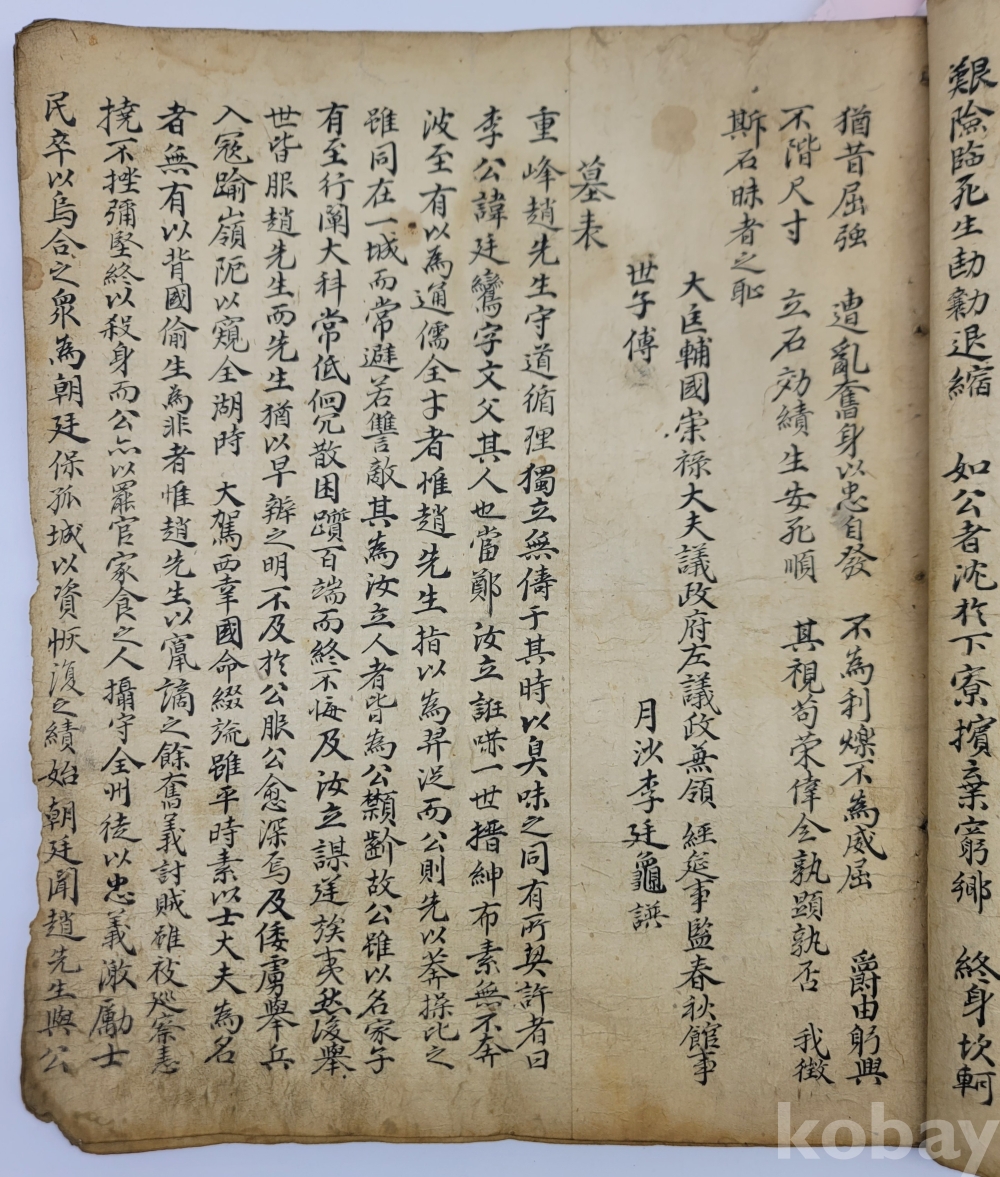 艱險臨死生劼勷退縮 如公者沈於下寮擯棄窮鄉 終身坎軻
猶昔屈強 遭亂奮身以忠自發 不為利爍不為威屈 爵由躬興
不階尺寸 立石効績生安死順 其視苟荣偉今孰顯孰否 我徵
斯石昧者之恥
大匡輔國崇禄大夫議政府左議政兼領 經筵事監春秋館事
世子傅 月沙李廷龜譔
墓表
重峰趙先生守道循理獨立無儔于其時以臭味之同有所契許者曰
李公諱廷鸞字文父其人也當鄭汝立誑嚇一世搢紳布素無不奔
波至有以為通儒全才者惟趙先生指以為羿浞而公則先以莽操比之
雖同在一城而常避若讐敵其為汝立人者皆為公齮齕故公雖以名家子
有至行闡大科常低佪冗散困躓百端而終不悔及汝立謀逆族夷然後舉
世皆服趙先生而先生猶以早辨之明不及於公服公愈深焉及倭虜舉兵
入寇踰嶺阨以窺全湖時 大駕西幸國命綴旒雖平時素以士大夫為名
者無有以背國偷生為非者惟趙先生以竄謫之餘奮義討賊雖被巡察恚
撓不挫彌堅終以殺身而公亦以罷官家食之人攝守全州徒以忠義激勵士
民卒以烏合之眾為朝廷保孤城以資恢復之績始朝廷聞趙先生與公
kobay